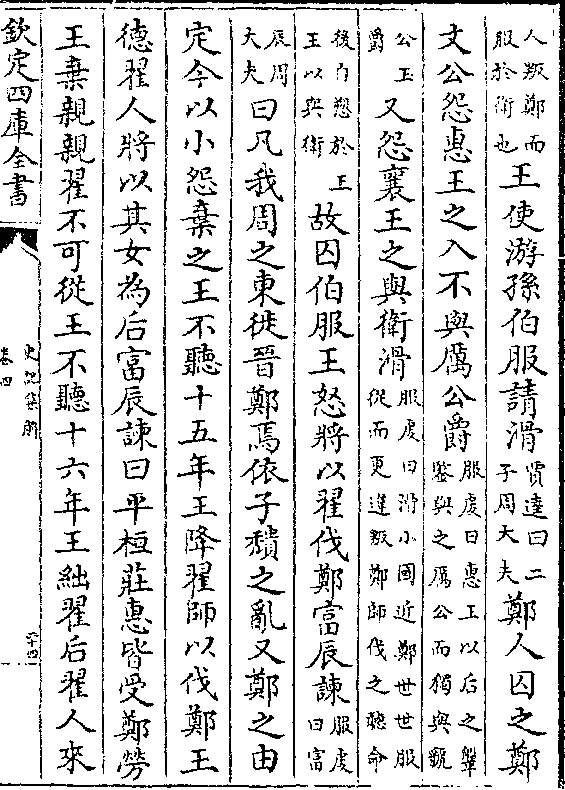 人叛鄭而服於衛也王使游孫伯服請滑賈逵曰二子周大夫鄭人囚之鄭
文公怨惠王之入不與厲公爵服虔曰惠王以后之鞶鑒與之厲公而獨與虢
公玉爵又怨襄王之與衛滑服虔曰滑小國近鄭世世服從而更違叛鄭師伐之聽命
後自愬於王王以與衛故囚伯服王怒將以翟伐鄭富辰諫服虔曰富
辰周大夫曰凡我周之東徙晉鄭焉依子穨之亂又鄭之由
定今以小怨棄之王不聽十五年王降翟師以伐鄭王
德翟人將以其女為后富辰諫曰平桓莊惠皆受鄭勞
王棄親親翟不可從王不聽十六年王絀翟后翟人來
欽定四庫全書
史記集解
卷四
二十四